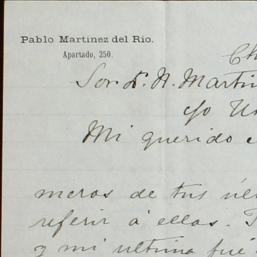 Pablo Martinez del Rio.
Apartado, 250.
Ch
Sor. D. N. Martin
c/o Un
Mi querido
meros de tus últ
referir á ellas.
y mi ultima fué